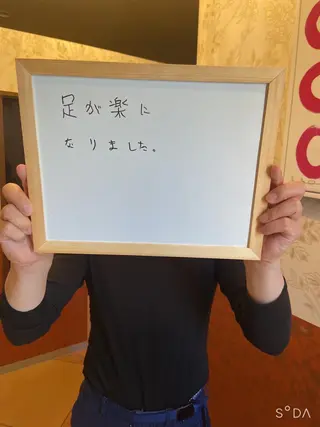 足が楽に
なりました。
SODA